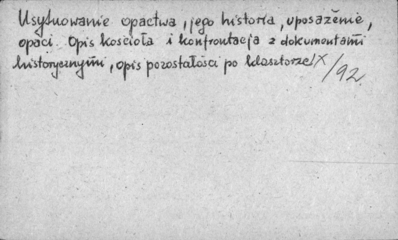 Usytuowanie opactwa, jego historia, uposażenie,
opaci. Opis kościoła i konfrontacja z dokumentami
historycznymi, opis pozostałości po klasztorze
IX/92.